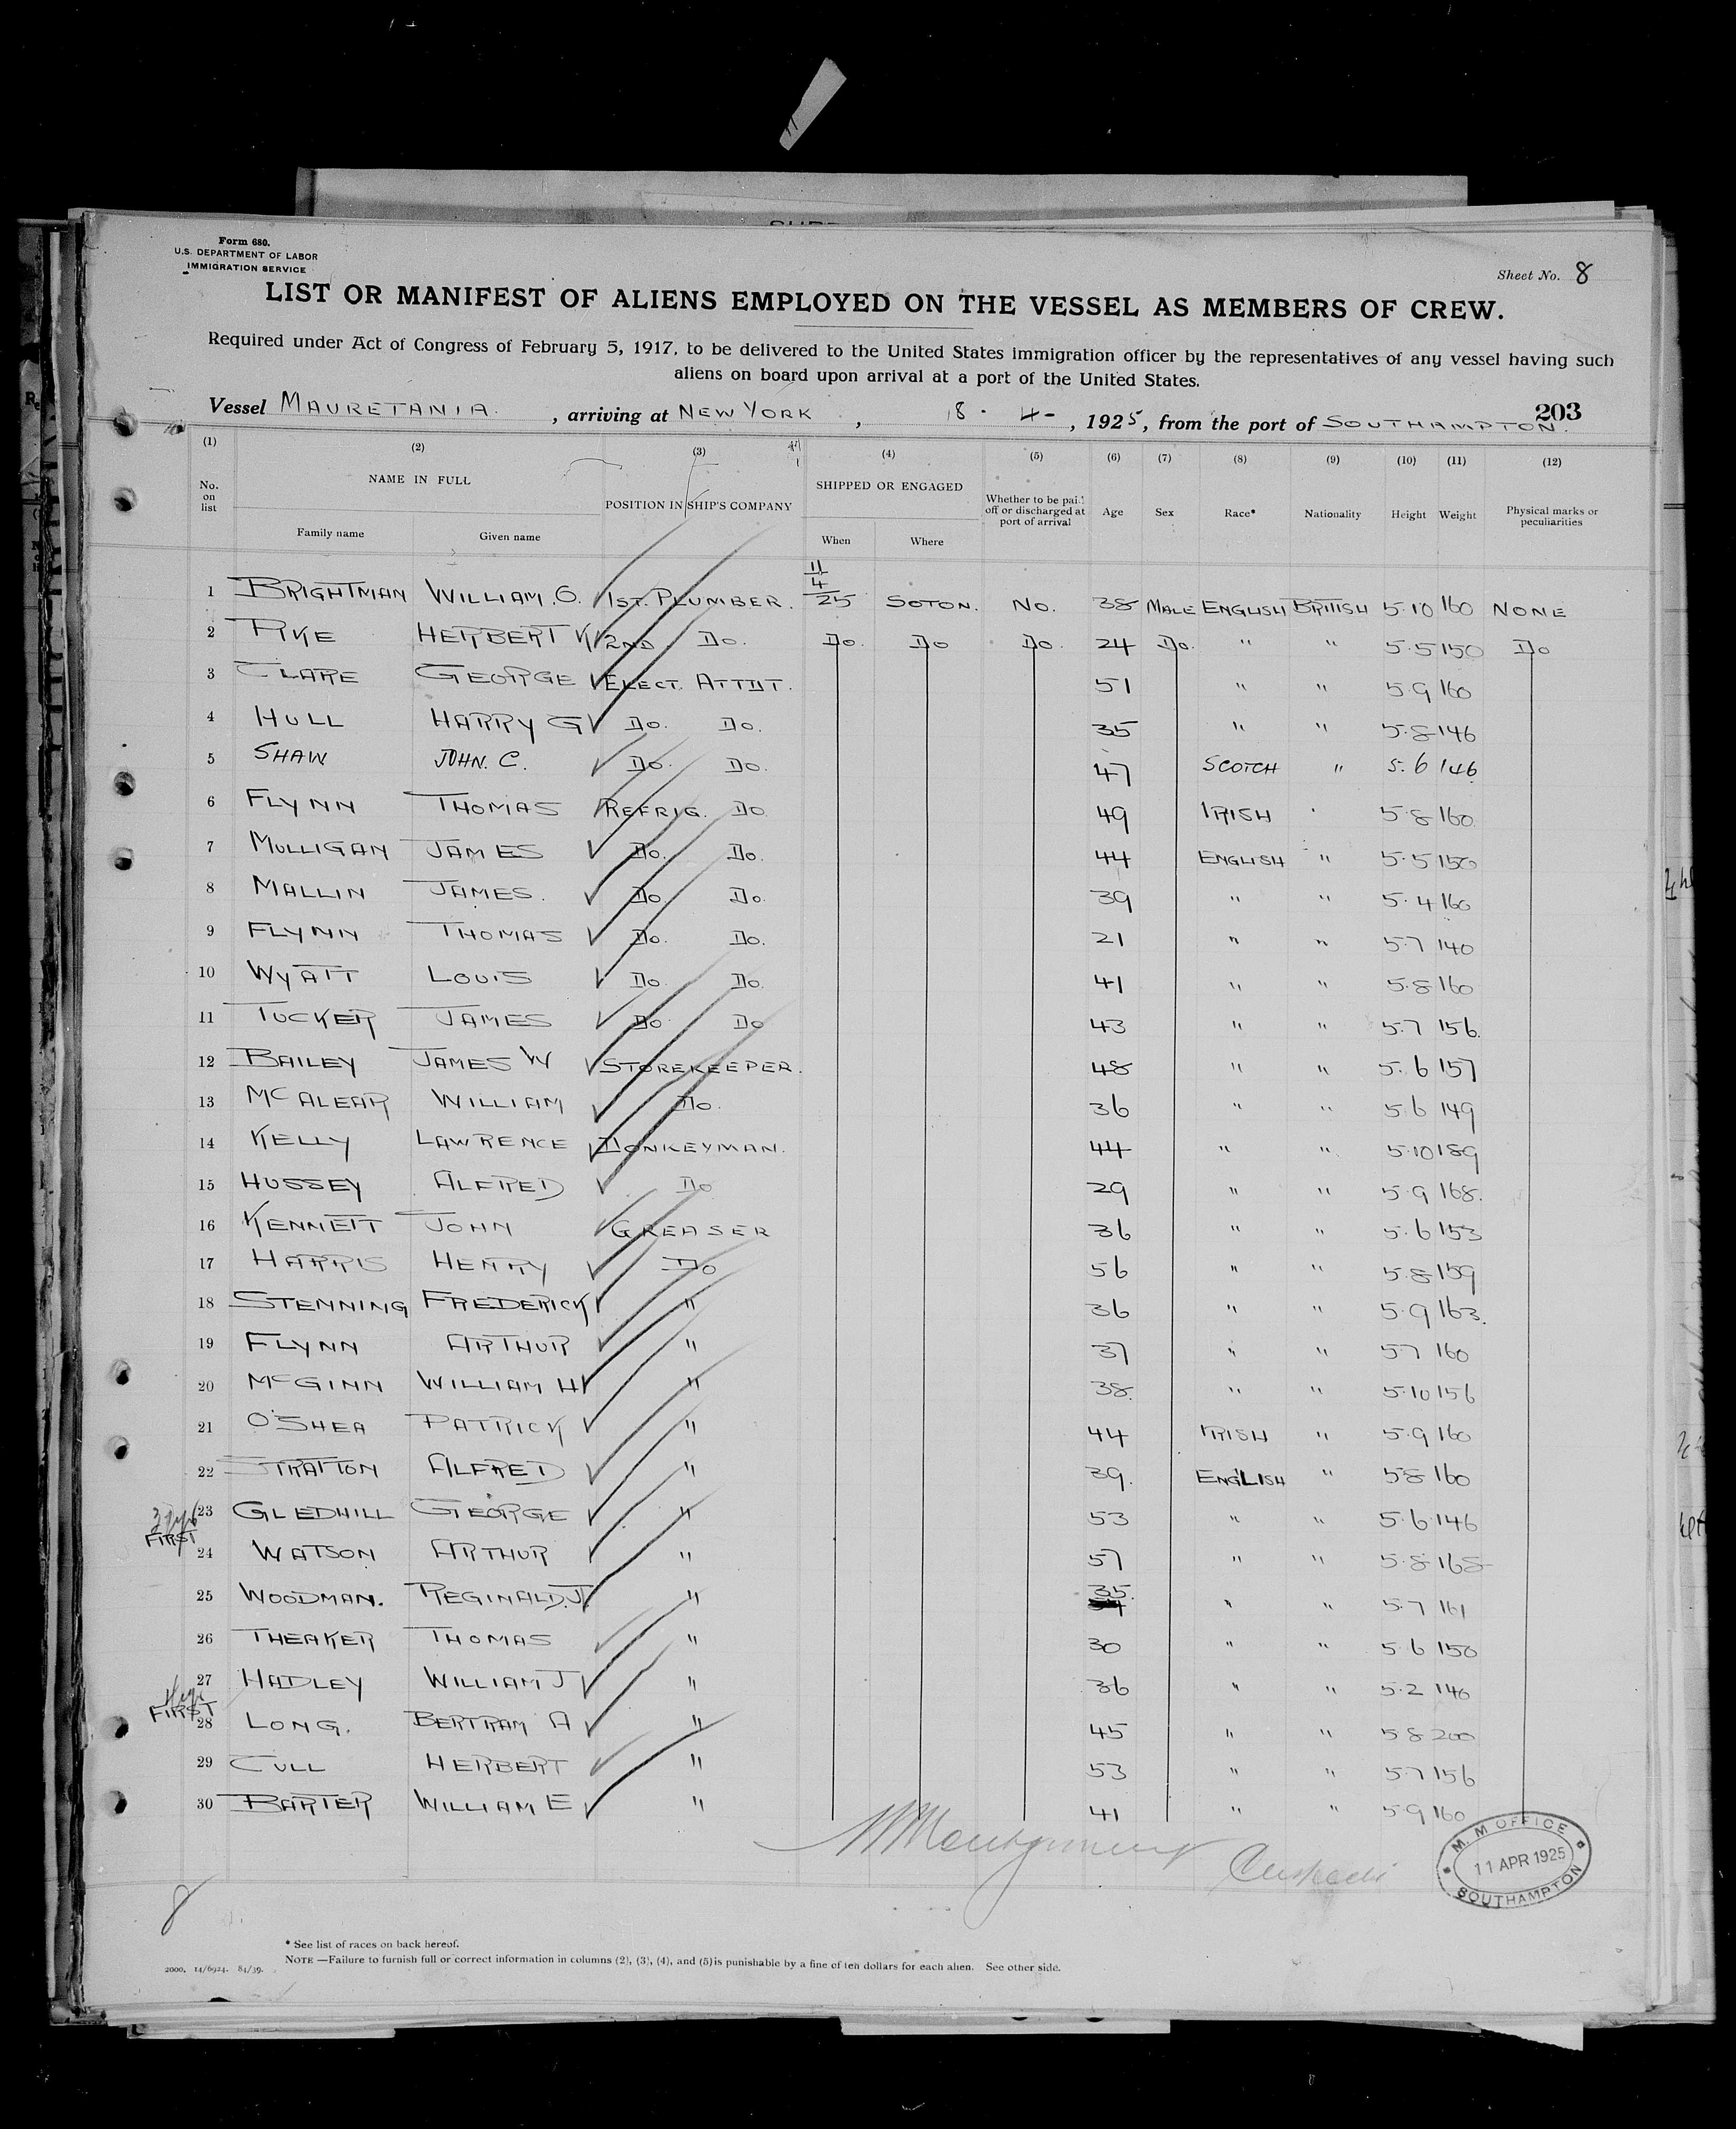 Form 680.
U.S. DEPARTMENT OF LABOR
IMMIGRATION SERVICE
Sheet No. 8
LIST OR MANIFEST OF ALIENS EMPLOYED ON THE VESSEL AS MEMBERS OF CREW.
Required under Act of Congress of February 5, 1917, to be delivered to the United States immigration officer by the representatives of any vessel having such
aliens on board upon arrival at a port of the United States.
203
Vessel MAURETANIA. , arriving at NEW YORK , 18 - 4 - , 1925, from the port of SOUTHAMPTON.
(1) (2) (3) (4) (5) (6) (7) (8) (9) (10) (11) (12)
No. on list NAME IN FULL POSITION IN SHIP'S COMPANY SHIPPED OR ENGAGED Whether to be paid off or discharged at port of arrival Age Sex Race* Nationality Height Weight Physical marks or peculiarities
Family name Given name When Where
1 BRIGHTMAN WILLIAM. O. 1ST. PLUMBER. 11/4/25 SOTON. NO. 38 MALE ENGLISH BRITISH 5.10 160 NONE
2 PIKE HERBERT K 2ND Do. Do. Do Do. 24 Do. " " 5.5 150 Do
3 CLARE GEORGE ELECT. ATTDT. 51 " " 5.9 160
4 HULL HARRY G Do. Do. 35 " " 5.8 146
5 SHAW JOHN. C. Do. Do. 47 SCOTCH " 5.6 146
6 FLYNN THOMAS REFRIG. Do 49 IRISH " 5.8 160
7 MULLIGAN JAMES Do. Do. 44 ENGLISH " 5.5 150
8 MALLIN JAMES. Do Do. 39 " " 5.4 160
9 FLYNN THOMAS Do. Do. 21 " " 5.7 140
10 WYATT LOUIS Do. Do. 41 " " 5.8 160
11 TUCKER JAMES Do. Do 43 " " 5.7 156.
12 BAILEY JAMES W STOREKEEPER. 48 " " 5.6 157
13 McALEAR WILLIAM Do. 36 " " 5.6 149
14 KELLY LAWRENCE DONKEYMAN. 44 " " 5.10 189
15 HUSSEY ALFRED Do 29 " " 5.9 168.
16 KENNETT JOHN GREASER 36 " " 5.6 153
17 HARRIS HENRY Do 56 " " 5.8 159
18 STENNING FREDERICK " 36 " " 5.9 163.
19 FLYNN ARTHUR " 37 " " 5.7 160
20 McGINN WILLIAM H " 38. " " 5.10 156
21 O'SHEA PATRICK " 44 IRISH " 5.9 160
22 STRATTON ALFRED " 39. ENGLISH " 5.8 160
23 GLEDHILL GEORGE " 53 " " 5.6 146
FIRST
24 WATSON ARTHUR " 57 " " 5.8 168
25 WOODMAN. REGINALD. J. " 35. " " 5.7 161
26 THEAKER THOMAS " 30 " " 5.6 150
27 HADLEY WILLIAM J " 36 " " 5.2 140
FIRST
28 LONG. BERTRAM A " 45 " " 5.8 200
29 CULL HERBERT " 53 " " 5.7 156
30 BARTER WILLIAM E " 41 " " 5.9 160
M. M OFFICE
11 APR 1925
SOUTHAMPTON
8
* See list of races on back hereof.
NOTE —Failure to furnish full or correct information in columns (2), (3), (4), and (5) is punishable by a fine of ten dollars for each alien. See other side.
2000, 14/6924. 84/39.